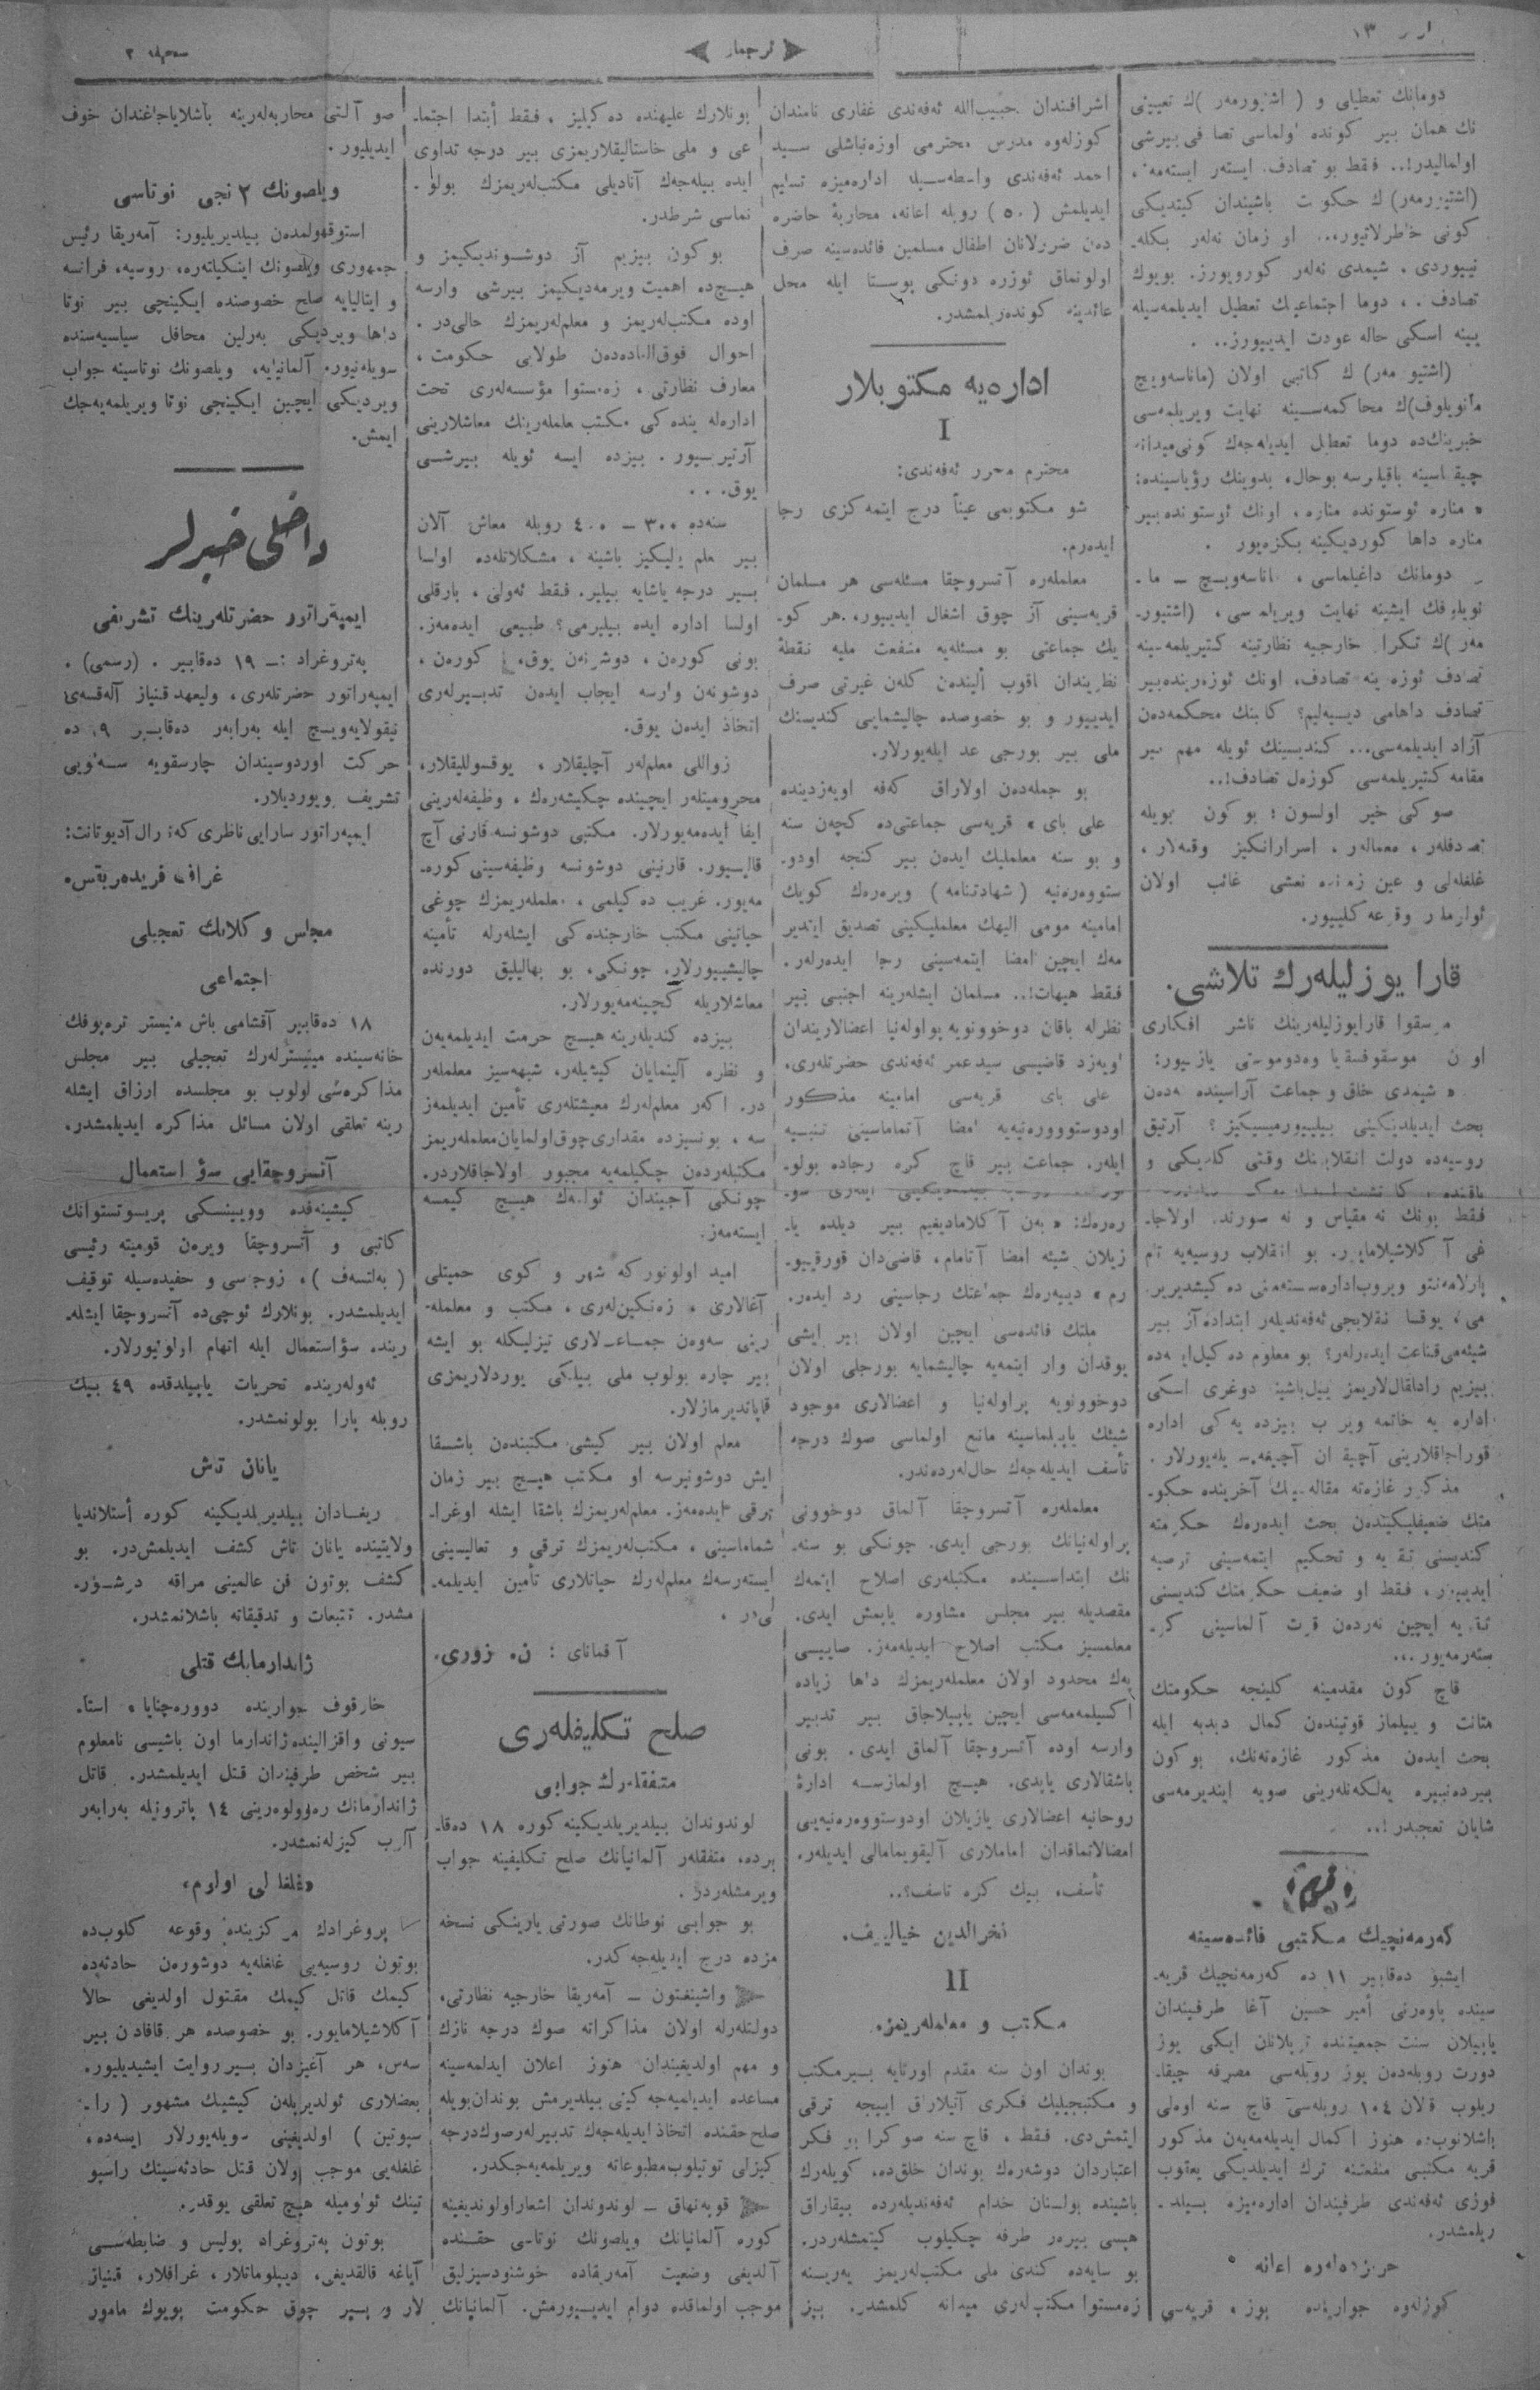 صحیفه ۲
ترجمان
دومانك تعطیلی و ( اشتیورمەر )ك تعیینی
نك همان بیر كونده اولماسی تصادفی بیرشی
اولمالیدر!.. فقط بو تصادف. ایستەر ایستەمەز،
(اشتیورمەر)ك حكومت باشیندان كیتدیكی
كونی خاطرلاتیور... او زمان نەلەر بكلە-
نییوردی. شیمدی نەلەر كورویورز. بویوك
تصادف.. دوما اجتماعینك تعطیل ایدیلمەسیله
یینه اسكی حاله عودت ایدییورز..
(اشتیورمەر)ك كاتبی اولان (ماناسەویچ
مانویلوف)ك محاكمەسینه نهایت ویریلمەسی
خبرینك‌ده دوما تعطیل ایدیلەجەك كونی میدانه
چیقماسینه باقیلیرسه بوحال، بدوینك رؤیاسینده:
« مناره ئوستونده مناره، اونك ئوستونده بیر
مناره داها كوردیكینه بكزەیور.
دومانك داغیلماسی، ماناسەویچ – ما-
نویلوفك ایشینه نهایت ویریلمەسی، (اشتیور-
مەر)ك تكرار خارجیه نظارتینه كتیریلمەسینه
تصادف ئوزەرینه تصادف، اونك ئوزەرینده بیر
تصادف داهامی دییەلیم؟ كاتبنك محكمەدەن
آزاد ایدیلمەسی... كندیسینك ئویله مهم بیر
مقامه كتیریلمەسی كوزەل تصادف!..
صوكی خیر اولسون؛ بو كون بویله
تصادفلەر، معمالەر، اسرارانكیز وقعەلار،
غلغلەلی و عین زمانده نعشی غائب اولان
ئولوملر وقوعه كلییور.
قارا یوزلیلەرك تلاشی.
موسقوا قارایوزلیلەرینك ناشر افكاری
اولان موسقوفسقیا وەدوموستی یازییور:
« شیمدی خلق و جماعت آراسینده نەدەن
بحث ایدیلدیكینی بیلییورمیسیكیز؟ آرتیق
روسیەده دولت انقلابینك وقتی كلدیكی و
فقط بونك نه مقیاس و نه صورتده اولاجا-
غی آكلاشیلامایور. بو انقلاب روسیەیه تام
پارلامەنتو ویروب اداره سیستەمنی ده كیشدیریر
می، یوقسا انقلابجی ئەفەندیلەر ابتداده آز بیر
شیئەمی قناعت ایدەرلەر؟ بو معلوم ده‌كیل ایسەده
بیزیم رادیقال‌لاریمز ییل‌باشینه دوغری اسكی
اداره یه خاتمه ویریب بیزده یه‌كی اداره
قوراجاقلارینی آچیقدان آچیغه سویلەیورلار.
مذكور غازەته مقالەسینك آخرینده حكو-
متك ضعیفلیكیندەن بحث ایدەرەك حكومته
كندیسنی تقویه و تحكیم ایتمەسینی توصیه
ایدییور. فقط او ضعیف حكومتك كندیسنی
تقویه ایچین نەردەن قوت آلماسینی كو-
ستەرمەیور...
قاچ كون مقدمینه كلینجه حكومتك
متانت و ییلماز قوتیندەن كمال دبدبه ایله
بحث ایدەن مذكور غازەتەنك، بوكون
بیردەنبیره یەلكەنلەرینی صویه ایندیرمەسی
شایان تعجبدر!..
قریم
كەرمەنچیك مكتبی فائدەسینه
ایشبو دەقابیر ۱۱ ده كەرمەنچیك قریە-
سینده یاوەرنی أمیر حسین آغا طرفیندان
یاپیلان سنت جمعیتنده توپلانان ایكی یوز
دورت روبلەدەن یوز روبلەسی مصرفه چیقا-
ریلوب قالان ۱۰٤ روبلەسی قاچ سنه اوەلی
باشلانوب‌ده هنوز اكمال ایدیلەمەیەن مذكور
قریه مكتبی منفعتنه ترك ایدیلدیكی یعقوب
فوزی ئەفەندی طرفیندان ادارەمیزه بیلد-
ریلمشدر.
حربزدەلەره اعانه
كوزلەوه جوارینده بوز، قریەسی
اشرافیندان حبیب‌الله ئەفەندی غفاری نامندان
كوزلەوه مدرس محترمی اوزەنباشلی سید
احمد ئەفەندی واسطەسیله ادارەمیزه تسلیم
ایدیلمش (۵۰) روبله اعانه، محاربهٔ حاضره
دەن ضررلانان اطفال مسلمین فائدەسینه صرف
اولونماق ئوزره دونكی پوستا ایله محل
عائدینه كوندەریلمشدر.
ادارەیه مكتوبلار
I
محترم محرر ئەفەندی:
شو مكتوبمی عیناً درج ایتمەكزی رجا
ایدەرم.
معلملەره آتسروچقا مسئلەسی هر مسلمان
قریەسینی آز چوق اشغال ایدییور، هر كو-
یك جماعتی بو مسئلەیه منفعت ملیه نقطهٔ
نظریندان باقوب ألیندەن كلەن غیرتی صرف
ایدییور و بو خصوصده چالیشمایی كندیسنك
ملی بیر بورجی عد ایلەیورلار.
بو جملەدەن اولاراق كەفه اویەزدینده
علی بای، قریەسی جماعتی‌ده كچەن سنه
و بو سنه معلملیك ایدەن بیر كنجه اودو-
ستووەرەنیه (شهادتنامه) ویرەرەك كویك
امامینه مومی الیهك معلملیكینی تصدیق ایتدیر
مەك ایچین امضا ایتمەسینی رجا ایدەرلەر.
فقط هیهات!.. مسلمان ایشلەرینه اجنبی بیر
نظرله باقان دوخوونویه پراولەنیا اعضالاریندان
اویەزد قاضیسی سید عمر ئەفەندی حضرتلەری،
علی بای قریەسی امامینه مذكور
اودوستووورەنیەیه امضا آتماماسینی تنبیه
ایلەر. جماعت بیر قاچ كره رجاده بولو-
رەرەك: «بەن آكلامادیغیم بیر دیلده یا-
زیلان شیئه امضا آتامام، قاضی‌دان قورقیو-
رم» دییەرەك جماعتك رجاسینی رد ایدەر.
ملتك فائدەسی ایچین اولان بیر ایشی
یوقدان وار ایتمەیه چالیشمایه بورجلی اولان
دوخوونویه پراولەنیا و اعضالاری موجود
شیئك یاپیلماسینه مانع اولماسی صوك درجه
تأسف ایدیلەجەك حال‌لەردەندر.
معلملەره آتسروچقا آلماق دوخوونی
پراولەنیانك بورجی ایدی. چونكی بو سنە-
نك ابتداسینده مكتبلەری اصلاح ایتمەك
مقصدیله بیر مجلس مشاوره یاپمش ایدی.
معلمسیز مكتب اصلاح ایدیلەمەز. صاییسی
پەك محدود اولان معلملەریمزك داها زیاده
اكسیلمەمەسی ایچین یاپیلاجاق بیر تدبیر
وارسه اوده آتسروچقا آلماق ایدی. بونی
باشقالاری یاپدی. هیچ اولمازسه ادارهٔ
روحانیه اعضالاری یازیلان اودوستووەرەنیەیی
امضالاتماقدان اماملاری آلیقویمامالی ایدیلەر.
تأسف، بیك كره تاسف؟..
فخرالدین خیالییف.
II
مكتب و معلملەریمز.
بوندان اون سنه مقدم اورتایه بیر مكتب
و مكتبجیلیك فكری آتیلاراق اییجه ترقی
ایتمش‌دی. فقط، قاچ سنه صوكرا بو فكر
اعتباردان دوشەرەك بوندان خلق‌ده، كویلەرك
باشینده بولنان خدام ئەفەندیلەرده بیقاراق
هپسی بیرەر طرفه چكیلوب كیتمشلەردر.
بو سایەده كندی ملی مكتب‌لەریمز یەرینه
زەمستوا مكتب‌لەری میدانه كلمشدر. بیز
بونلارك علیهنده ده‌كیلیز، فقط أبتدا اجتما-
عی و ملی خاستالیقلاریمزی بیر درجه تداوی
ایده بیلەجەك آنادیلی مكتب‌لەریمزك بولو-
نماسی شرطدر.
بو كون بیزیم آز دوشوندیكیمز و
هیچ‌ده اهمیت ویرمەدیكیمز بیرشی وارسه
اوده مكتب‌لەریمز و معلم‌لەریمزك حالی‌در.
احوال فوق‌العادەدەن طولایی حكومت،
معارف نظارتی، زەمستوا مؤسسەلەری تحت
ادارەلەرینده‌كی مكتب معلملەرینك معاشلارینی
آرتیرییور. بیزده ایسه ئویله بیرشی
یوق...
سنەده ۳۰۰ – ٤۰۰ روبله معاش آلان
بیر معلم یالیكیز باشینه، مشكلاتلەده اولسا
بیر درجه یاشایه بیلیر. فقط ئەولی، بارقلی
اولسا اداره ایده بیلیرمی؟ طبیعی ایدەمەز.
بونی كورەن، دوشونەن یوق، كورەن،
دوشونەن وارسه ایجاب ایدەن تدبیرلەری
اتخاذ ایدەن یوق.
زواللی معلم‌لەر آچلیقلار، یوقسوللیقلار،
محرومیتلەر ایچینده چكیشەرەك، وظیفەلەرینی
ایفا ایدەمەیورلار. مكتبی دوشونسه قارنی آچ
قالییور. قارنینی دوشونسه وظیفەسینی كورە-
مەیور. غریب ده‌كیلمی، معلملەریمزك چوغی
حیاتینی مكتب خارجنده‌كی ایشلەرله تأمینه
چالیشییورلار. چونكی، بو بهالیلیق دورنده
معاشلاریله كچینەمەیورلار.
بیزده كندیلەرینه هیچ حرمت ایدیلمەیەن
و نظره آلینمایان كیشیلەر، شبهەسیز معلملەر
در. اكەر معلم‌لەرك معیشتلەری تأمین ایدیلمەز
سه، بونسیزده مقداری چوق اولمایان معلملەریمز
مكتبلەردەن چكیلمەیه مجبور اولاجاقلاردر.
چونكی آجیندان ئولمەك هیچ كیمسه
ایستەمەز.
امید اولونور كه شهر و كوی حمیتلی
آغالاری، زەنكین‌لەری، مكتب و معلملە-
رینی سەوەن جماعت‌لاری تیزلیكله بو ایشه
بیر چاره بولوب ملی بیلكی یوردلاریمزی
قاپاندیرمازلار.
معلم اولان بیر كیشی مكتبندەن باشقا
ایش دوشونیرسه او مكتب هیچ بیر زمان
ترقی ایدەمەز. معلم‌لەریمزك باشقا ایشله اوغرا-
شماماسینی، مكتب‌لەریمزك ترقی و تعالیسینی
ایستەرسەك معلم‌لەرك حیاتلاری تأمین ایدیلمە-
لی‌در.
آقمانای: ن. زوری.
صلح تكلیفلەری
متفقلەرك جوابی
لوندوندان بیلدیریلدیكینه كوره ۱۸ دەقا-
برده، متفقلەر آلمانیانك صلح تكلیفینه جواب
ویرمشلەردر.
بو جوابی نوطانك صورتی یارینكی نسخه
مزده درج ایدیلەجەكدر.
واشینغتون – آمەریقا خارجیه نظارتی،
دولتلەرله اولان مذاكراته صوك درجه نازك
و مهم اولدیغیندان هنوز اعلان ایدلمەسینه
مساعده ایدیلمیه‌جەكینی بیلدیرمش بوندان بویله
صلح حقنده اتخاذ ایدیلەجەك تدبیرلەر صوك درجه
كیزلی توتیلوب مطبوعاته ویریلمەیەجكدر.
قوپەنهاق – لوندوندان اشعار اولوندیغینه
كوره آلمانیانك ویلصونك نوتاسی حقنده
آلدیغی وضعیت آمەریقاده خوشنودسیزلیق
موجب اولماقده دوام ایدییورمش. آلمانیانك
صو آلتی محاربەلەرینه باشلایاجاغندان خوف
ایدیلیور.
ویلصونك ۲ نجی نوتاسی
استوقهولمدەن بیلدیریلیور: آمەریقا رئیس
جمهوری ویلصونك اینكیلتەره، روسیه، فرانسه
و ایتالیایه صلح خصوصنده ایكینچی بیر نوتا
داها ویردیكی بەرلین محافل سیاسیەسنده
سویلەنیور. آلمانیایه، ویلصونك نوتاسینه جواب
ویردیكی ایچین ایكینجی نوتا ویریلمەیەجك
ایمش.
داخلی خبرلر
ایمپەراتور حضرتلەرینك تشریفی
پەتروغراد:– ۱۹ دەقابیر. (رسمی).
ایمپەراتور حضرتلەری، ولیعهد قنیاز آلەقسەی
نیقولایەویچ ایله بەرابەر دەقابیر ۱۹ ده
حركت اوردوسیندان چارسقویه سەلویی
تشریف بویوردیلار.
ایمپەراتور سارایی ناظری كەنەرال آدیوتانت:
غراف فریدەریقس.
مجلس وكلانك تعجیلی
اجتماعی
۱۸ دەقابیر آقشامی باش مینیستر ترەپوفك
خانەسینده مینیسترلەرك تعجیلی بیر مجلس
مذاكرەسی اولوب بو مجلسده ارزاق ایشلە
رینه تعلقی اولان مسائل مذاكره ایدیلمشدر.
آتسروچقایی سؤ استعمال
كیشینەفده وویینسكی پریسوتستوانك
كاتبی و آتسروچقا ویرەن قومیته رئیسی
(بەلتسەف)، زوجەسی و حفیدەسیله توقیف
ایدیلمشدر. بونلارك ئوچی‌ده آتسروچقا ایشلە-
رینده سؤاستعمال ایله اتهام اولونیورلار.
ئەولەرینده تحریات یاپیلدقده ٤۹ بیك
روبله پارا بولونمشدر.
یانان تاش
ریغادان بیلدیریلدیكینه كوره أستلاندیا
ولایتینده یانان تاش كشف ایدیلمش‌در. بو
كشف بوتون فن عالمینی مراقه دوشور-
مشدر. تتبعات و تدقیقاته باشلانمشدر.
ژاندارمانك قتلی
خارقوف جوارینده دوورەچنایا، استا-
سیونی واقزالینده ژاندارما اون باشیسی نامعلوم
بیر شخص طرفیندان قتل ایدیلمشدر. قاتل
ژاندارمانك رەوولوەرینی ۱٤ پاترونیله بەرابەر
آلوب كیزلەنمشدر.
«غلغلەلی اولوم»
پتروغرادك مركزینده وقوعه كلوب‌ده
بوتون روسیەیی غلغلەیه دوشورەن حادثەده
كیمك قاتل كیمك مقتول اولدیغی حالا
آكلاشیلامایور. بو خصوصده هر قافادان بیر
سەس، هر آغیزدان بیر روایت ایشیدیلیور.
بعضلاری ئولدیریلەن كیشینك مشهور (را-
سپوتین) اولدیغینی سویلەیورلار ایسەده،
غلغلەیی موجب اولان قتل حادثەسینك راسپو
تینك ئولومیله هیچ تعلقی یوقدر.
بوتون پەتروغراد پولیس و ضابطەسی
آیاغه قالقدیغی، دیپلوماتلار، غرافلار، قنیاز
لار و بیر چوق حكومت بویوك مامور